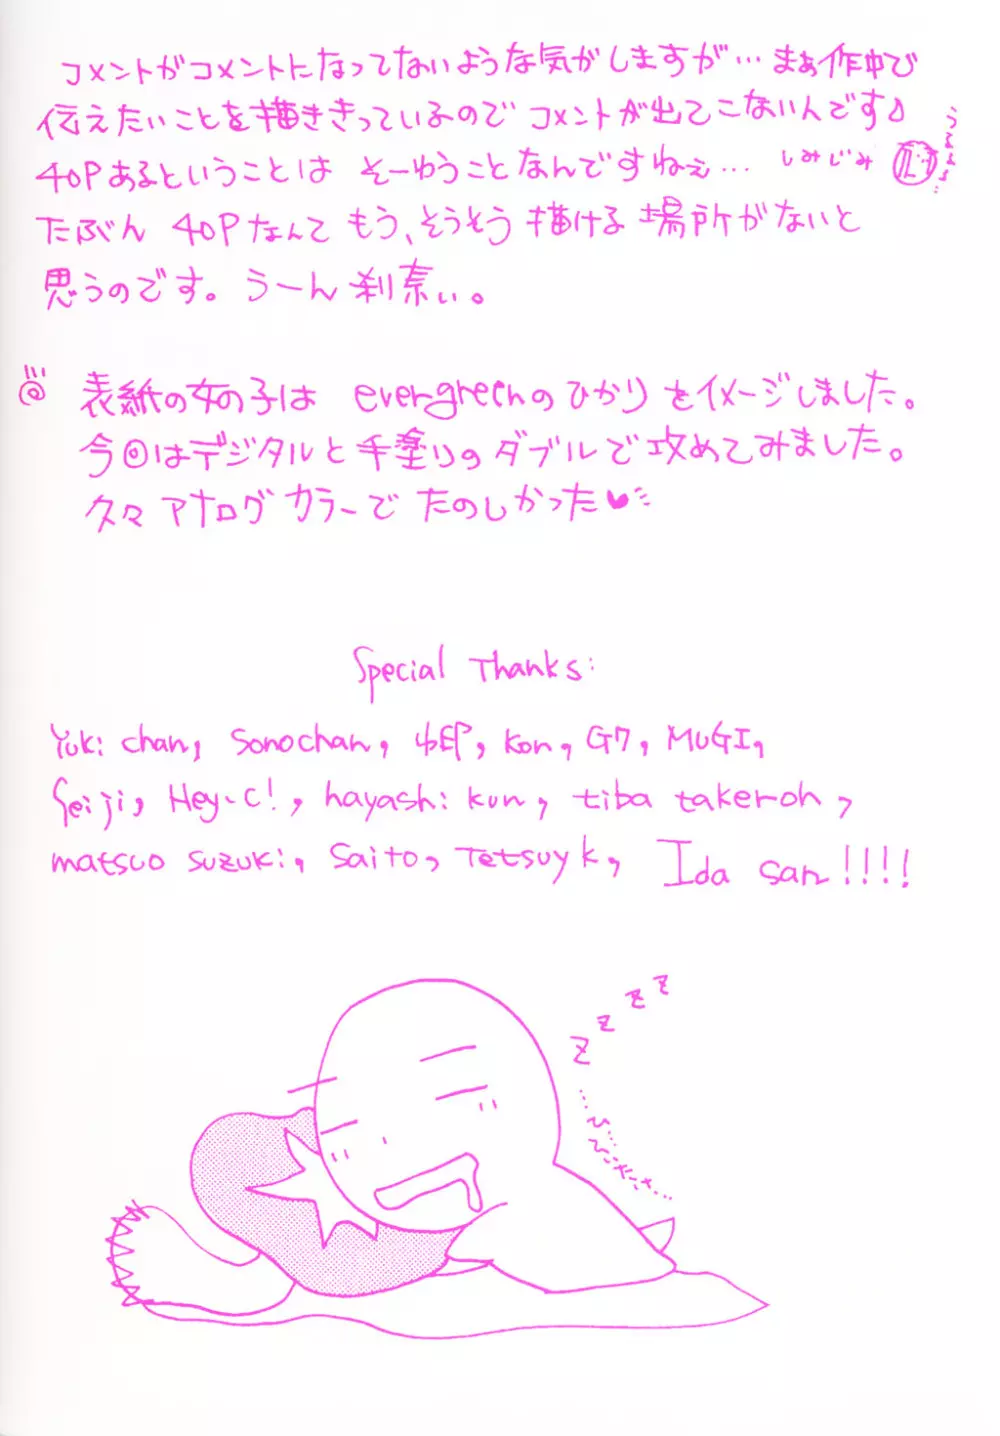 コメントがコメントになってないような気がしますが…まぁ作中で
伝えたいことを描ききっているのでコメントが出てこないんです♪
40Pあるということは そーゆうことなんですねぇ… しみじみ
たぶん 40Pなんて もう、そうそう 描ける 場所がないと
思うのです。うーん 刹素い。
表紙の女の子は evergreenのひかり をイメージしました。
今回はデジタルと手塗りのダブルで攻めてみました。
久々アナログカラーで たのしかった♥
Special Thanks:
Yuki chan, Sonochan, ゆEP, Kon, G7, MUGI,
Seiji, Hey-C!, hayashi kun, tiba takeroh,
matsuo suzuki, Saito, Tetsuyk, Ida san!!!!
z z z z